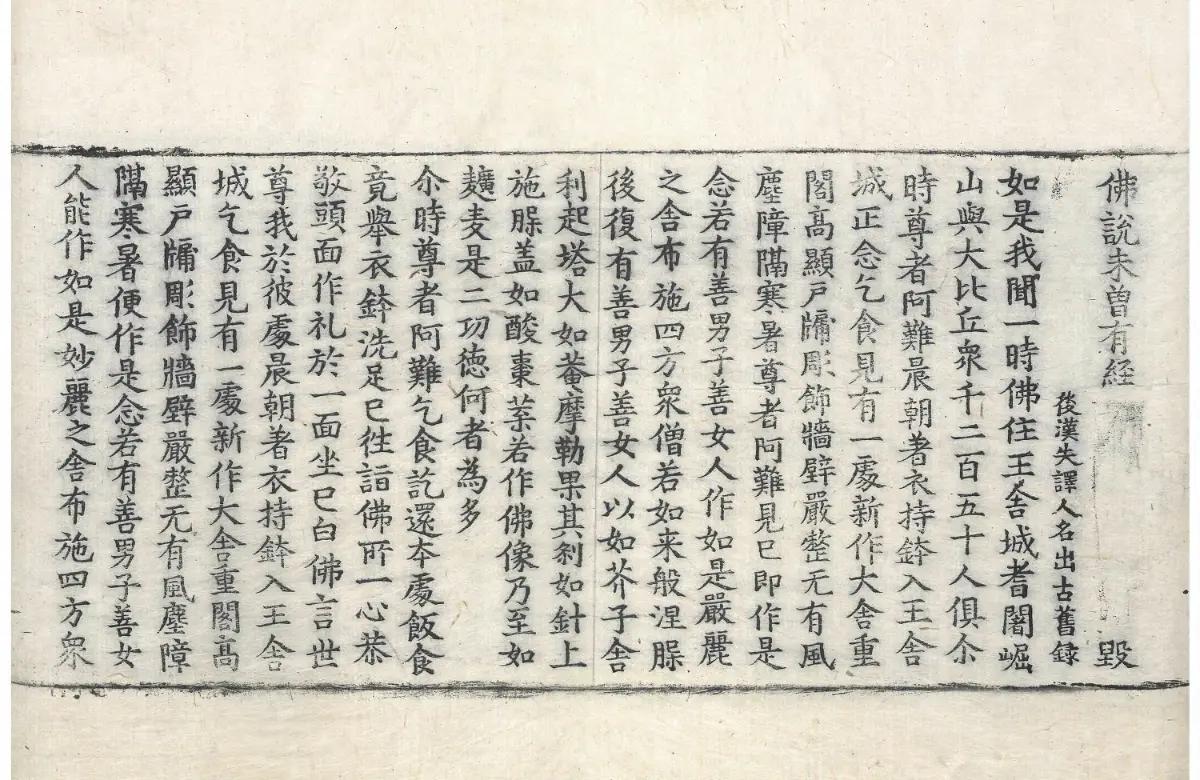 佛說未曽有経 毀
後漢失譯人名出古舊錄
如是我聞一時佛住王舍城耆闍崛
山與大比丘衆千二百五十人俱尒
時尊者阿難晨朝著衣持鉢入王舍
城正念乞食見有一處新作大舍重
閣高顯戶牖彫飾牆壁嚴整无有風
塵障隔寒暑尊者阿難見已即作是
念若有善男子善女人作如是嚴麗
之舍布施四方衆僧若如来般涅脵
後復有善男子善女人以如芥子舍
利起塔大如菴摩勒果其剎如針上
施脵盖如酸棗葉若作佛像乃至如
䵃麦是二功徳何者為多
尒時尊者阿難乞食訖還本處飯食
竟舉衣鉢洗足已徃詣佛所一心恭
敬頭面作礼於一面坐已白佛言世
尊我於彼處晨朝著衣持鉢入王舍
城乞食見有一處新作大舍重閣高
顯戶牖彫飾牆壁嚴整无有風塵障
隔寒暑便作是念若有善男子善女
人能作如是妙麗之舍布施四方衆